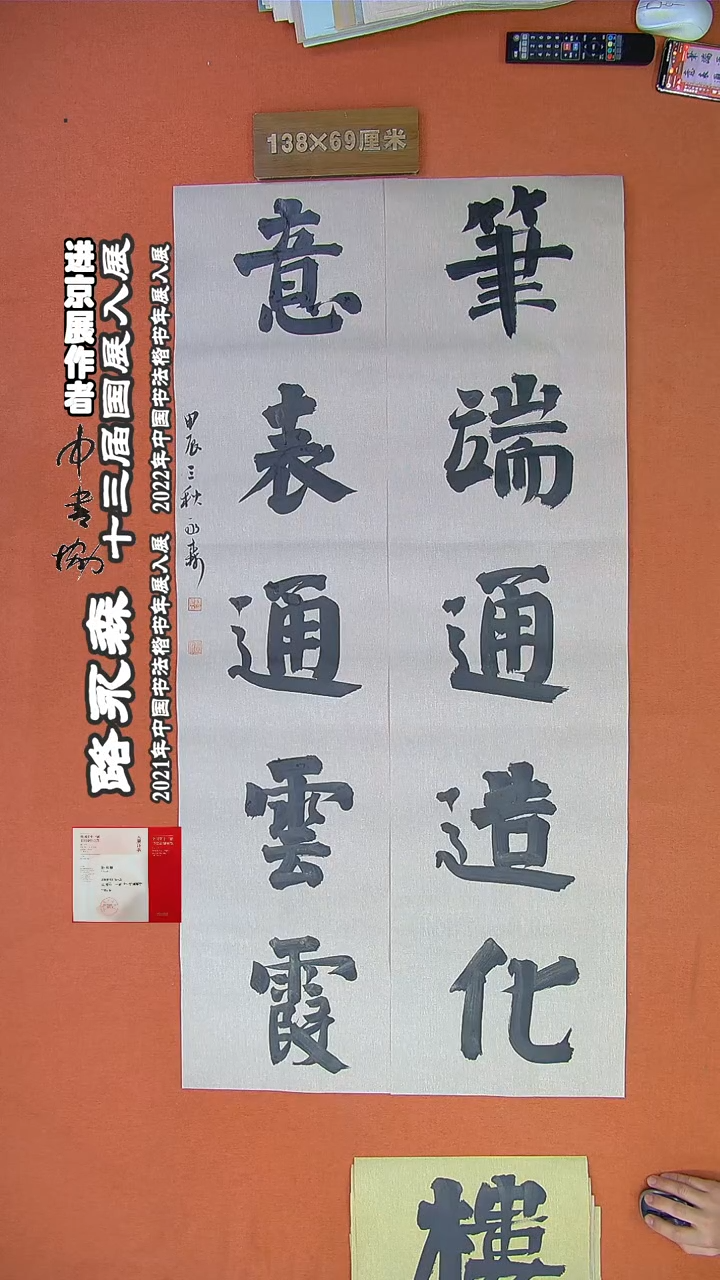 138×69厘米
筆端通造化
意表通雲霞
甲辰三秋永森
进河展作者
中书协
十三届国展入展
路永森
2021年中国书法楷书年展入展
2022年中国书法楷书年展入展
樓